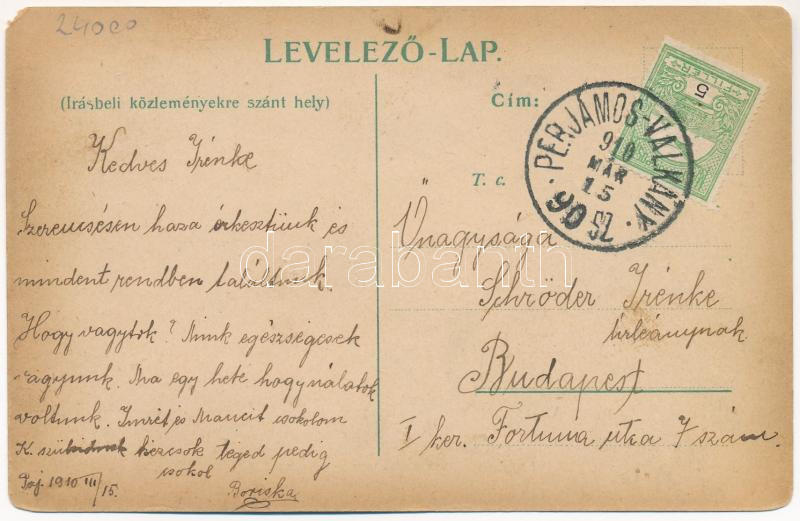 24000
LEVELEZŐ-LAP.
(Irásbeli közleményekre szánt hely)
Cím:
T. c.
5
FILLÉR
PERJÁMOS-VALKÁNY
910
MÁR
15
90 SZ
Kedves Irénke
Szerencsésen haza érkeztünk és
mindent rendben találtunk.
Hogy vagytok? Mink egészségesek
vagyunk. Ma egy hete hogy nálatok
voltunk. Imrét és Mancit csokolom
K. kézcsok téged pedig
csokol
1910 III/15.
Boriska
Önagysága
Schröder Irénke
úrleánynak
Budapest
I ker. Fortuna utca 7 szám.
darabanth